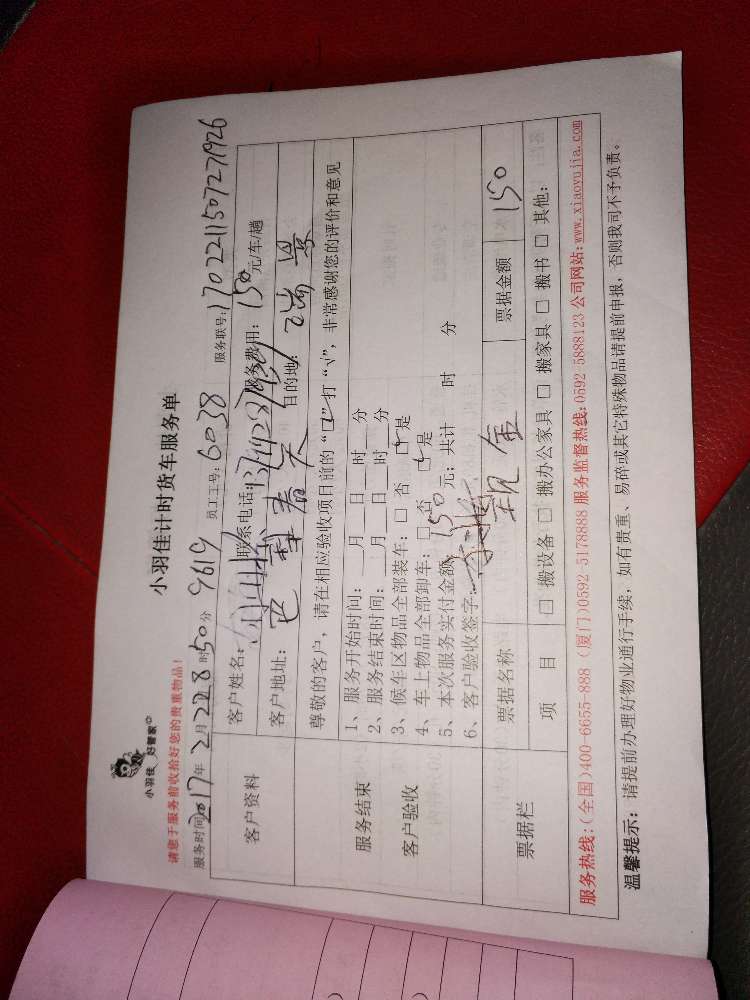 小羽佳 好管家
小羽佳计时货车服务单
请您于服务前收拾好您的贵重物品!
服务时间: 2017年2月22日8时50分 9619 员工工号: 6038 服务联号: 1702211507271926
客户资料
客户姓名: 联系电话: 服务费用: 150元/车/趟
客户地址: 春天 目的地: 瑞景
服务结束
客户验收
尊敬的客户,请在相应验收项目前的“□”打“√”,非常感谢您的评价和意见
1、服务开始时间: 月 日 时 分
2、服务结束时间: 月 日 时 分
3、候车区物品全部装车: □ 否 □ 是
4、车上物品全部卸车: □ 否 □ 是
5、本次服务实付金额: 150元; 共计 时 分
6、客户验收签字:
票据栏
票据名称 现金 票据金额 150
项 目 □ 搬设备 □ 搬办公家具 □ 搬家具 □ 搬书 □ 其他:
服务热线: (全国)400-6655-888 (厦门)0592 5178888 服务监督热线: 0592-5888123 公司网站: www.xiaoyujia.com
温馨提示: 请提前办理好物业通行手续, 如有贵重、易碎或其它特殊物品请提前申报, 否则我司不予负责。